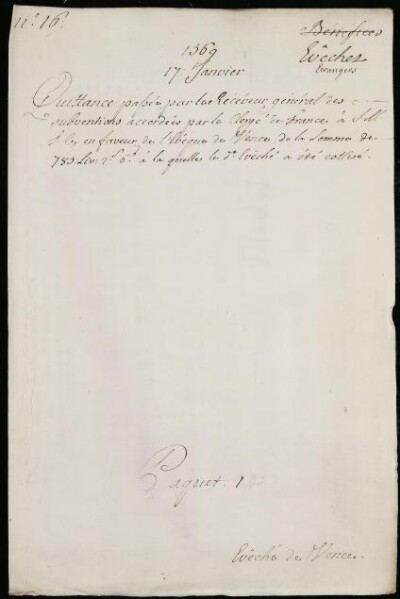 n.º 16.
Bénéfices
Evêchez
Etrangers
1569
17. Janvier
Quittance passée par le Receveur général des
subventions accordées par le Clergé de France à S. M.
T. C. en faveur de l'Evêque de Vence de la Somme de
783 Liv. 2.s 6.d à la quelle le d.t Evêché a été cottisé.
Paquet. 1
Evêché de Vence.